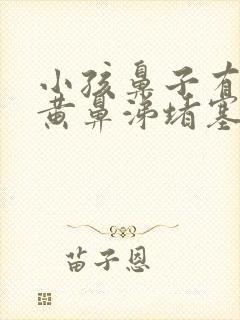 小孩鼻子有
黄鼻涕堵塞
苗子恩